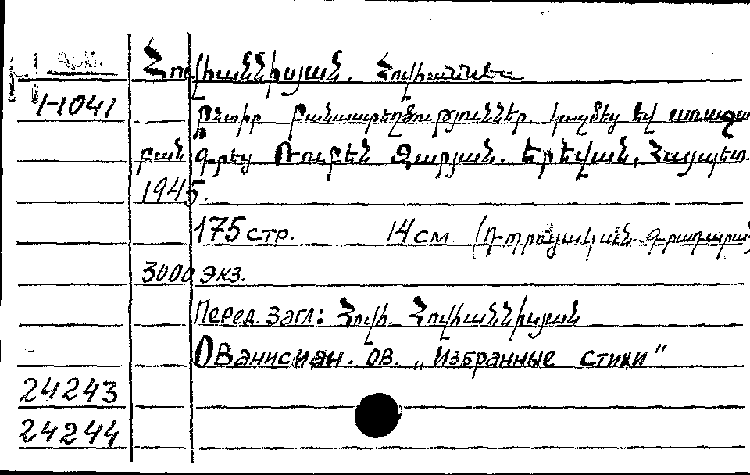 Հովհաննիսյան. Հովհաննես
1-1041
Ընտիր բանաստեղծություններ. կազմեց եվ առաջա
բան գրեց Ռուբեն Զարյան. Երեվան, Հայպետ
1945.
175 стр. 14 см (Դպրոցական գրադարան)
3000 экз.
Перед. загл: Հովհ. Հովհաննիսյան
Ованисиан. ов. „Избранные стихи"
24243
24244